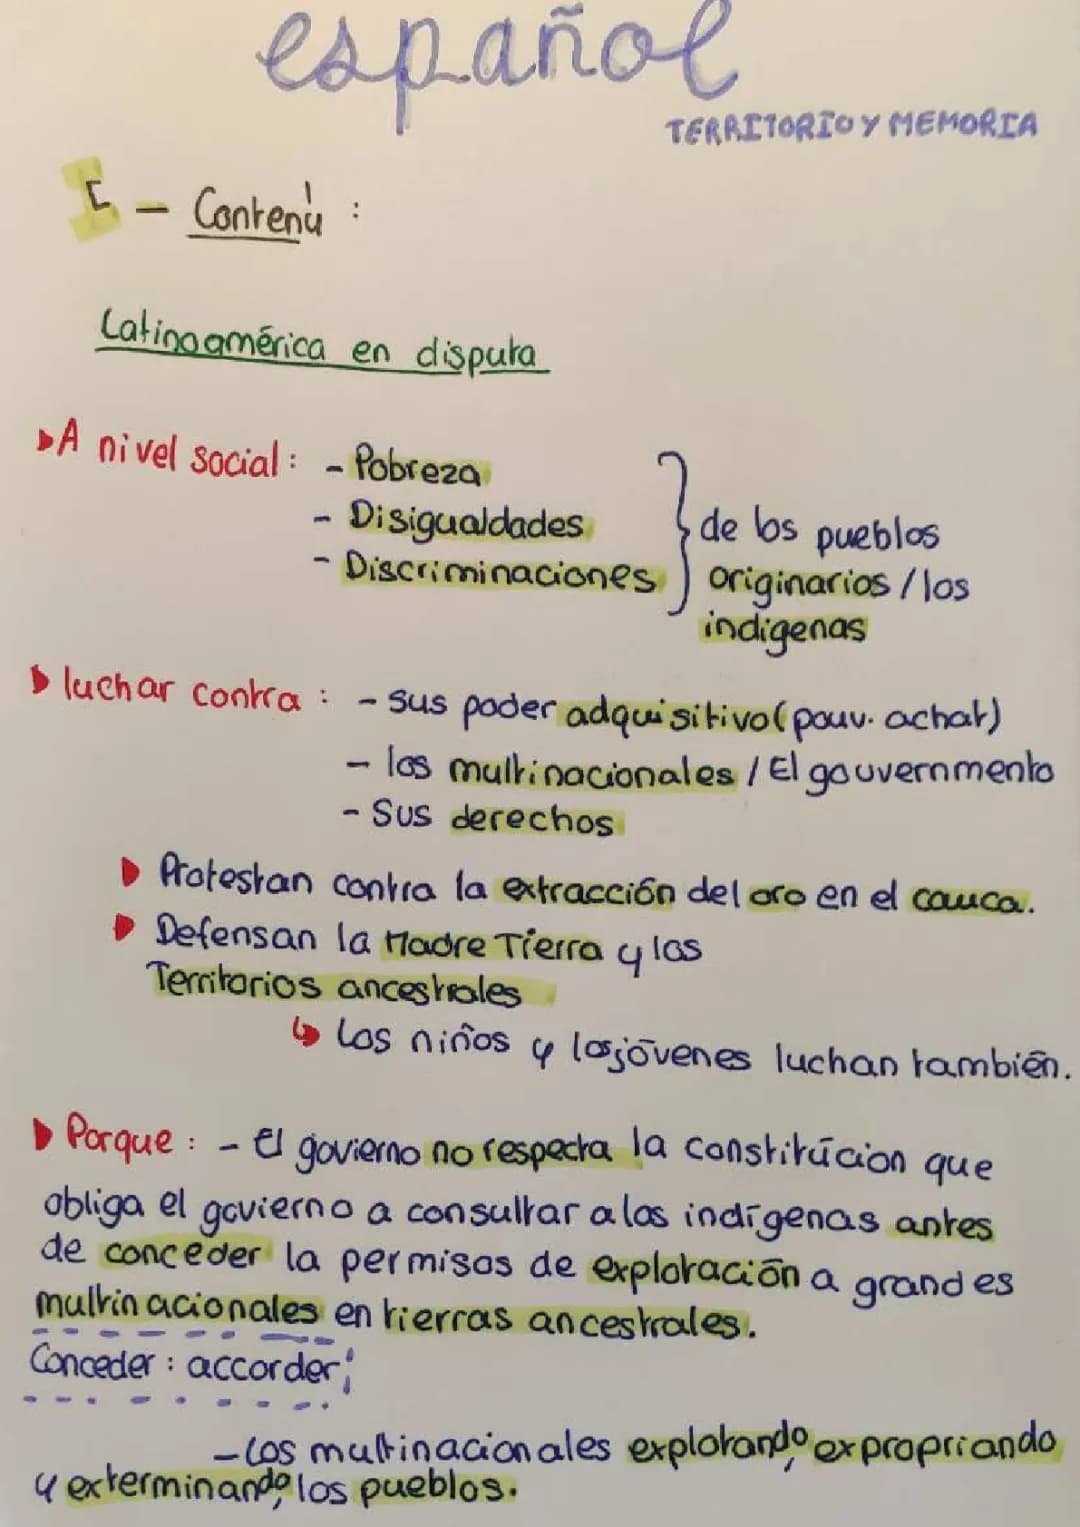 español
TERRITORIO Y MEMORIA
I - Contenú :
Latinoamérica en disputa
A nivel social : - Pobreza
- Disigualdades
- Discriminaciones
de los pueblos
originarios / los
indigenas
luchar contra : - sus poder adquisitivo (pouv. achat)
- las multinacionales / El gouvernmento
- Sus derechos
Protestan contra la extracción del oro en el cauca.
Defensan la Madre Tierra y los
Territorios ancestrales
Los niños y los jóvenes luchan también.
Porque : - El govierno no respecta la constitúcion que
obliga el govierno a consultar a los indígenas antes
de conceder la permisos de explotación a grandes
multinacionales en tierras ancestrales.
Conceder : accorder
- Los multinacionales explotando, expropriando
y exterminando, los pueblos.